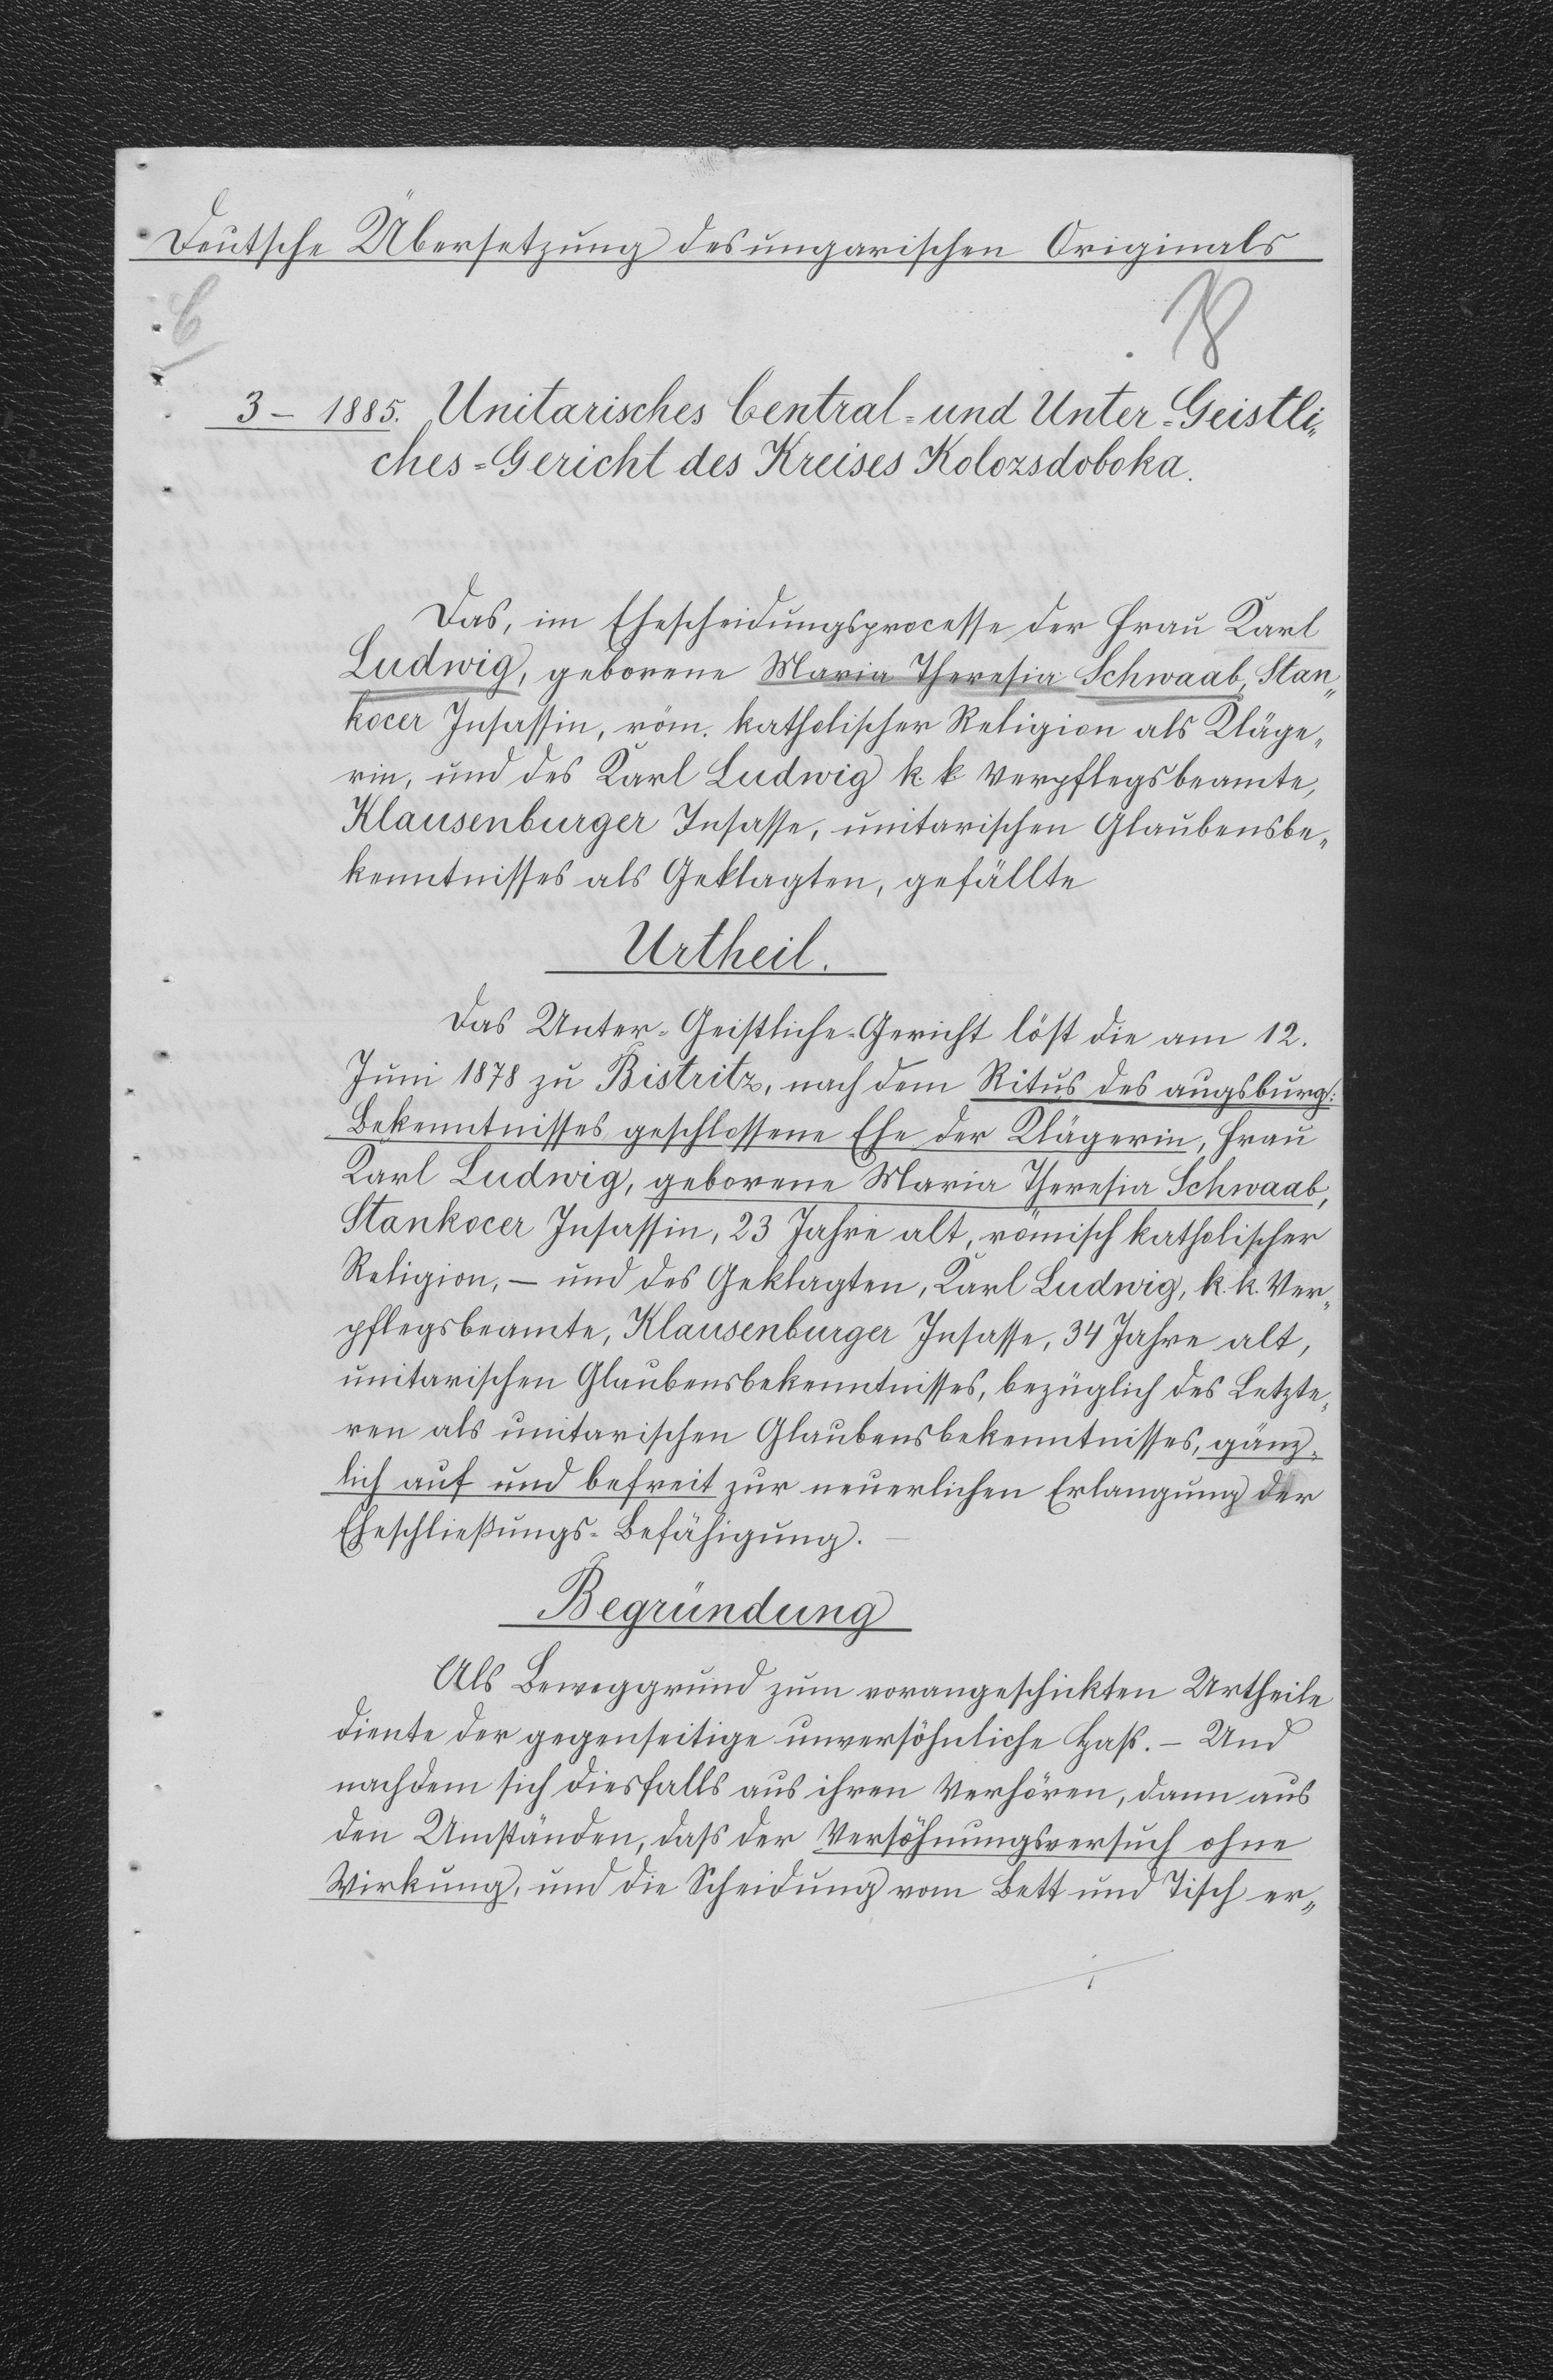 Deutsche Übersetzung des ungarischen Originals
3 - 1885. Unitarisches Central- und Unter-Geistli„
ches-Gericht des Kreises Kolozsdoboka.
Das, im Ehescheidungsprocesse der Frau Karl
Ludwig, geborene Maria Theresia Schwaab, Stan„
kocer Insassin, röm. katholischer Religion als Kläge„
rin, und des Karl Ludwig k. k. Verpflegsbeamte,
Klausenburger Insasse, unitarischen Glaubensbe„
kenntnisses als Geklagten, gefällte
Urtheil.
Das Unter-Geistliche-Gericht löst die am 12.
Juni 1878 zu Bistritz, nach dem Ritus des augsburg:
Bekenntnisses geschlossene Ehe der Klägerin, Frau
Karl Ludwig, geborene Maria Theresia Schwaab,
Stankocer Insassin, 23 Jahre alt, römisch katholischer
Religion, – und des Geklagten, Karl Ludwig, k. k. Ver„
pflegsbeamte, Klausenburger Insasse, 34 Jahre alt,
unitarischen Glaubensbekenntnisses, bezüglich des Letzte„
ren als unitarischen Glaubensbekenntnisses, gänz-
lich auf und befreit zur neuerlichen Erlangung der
Eheschließungs-Befähigung. –
Begründung
Als Beweggrund zum vorangeschickten Urtheile
diente der gegenseitige unversöhnliche Haß. – Und
nachdem sich diesfalls aus ihren Verhören, dann aus
den Umständen, dass der Versöhnungsversuch ohne
Wirkung, und die Scheidung vom Bett und Tisch er„